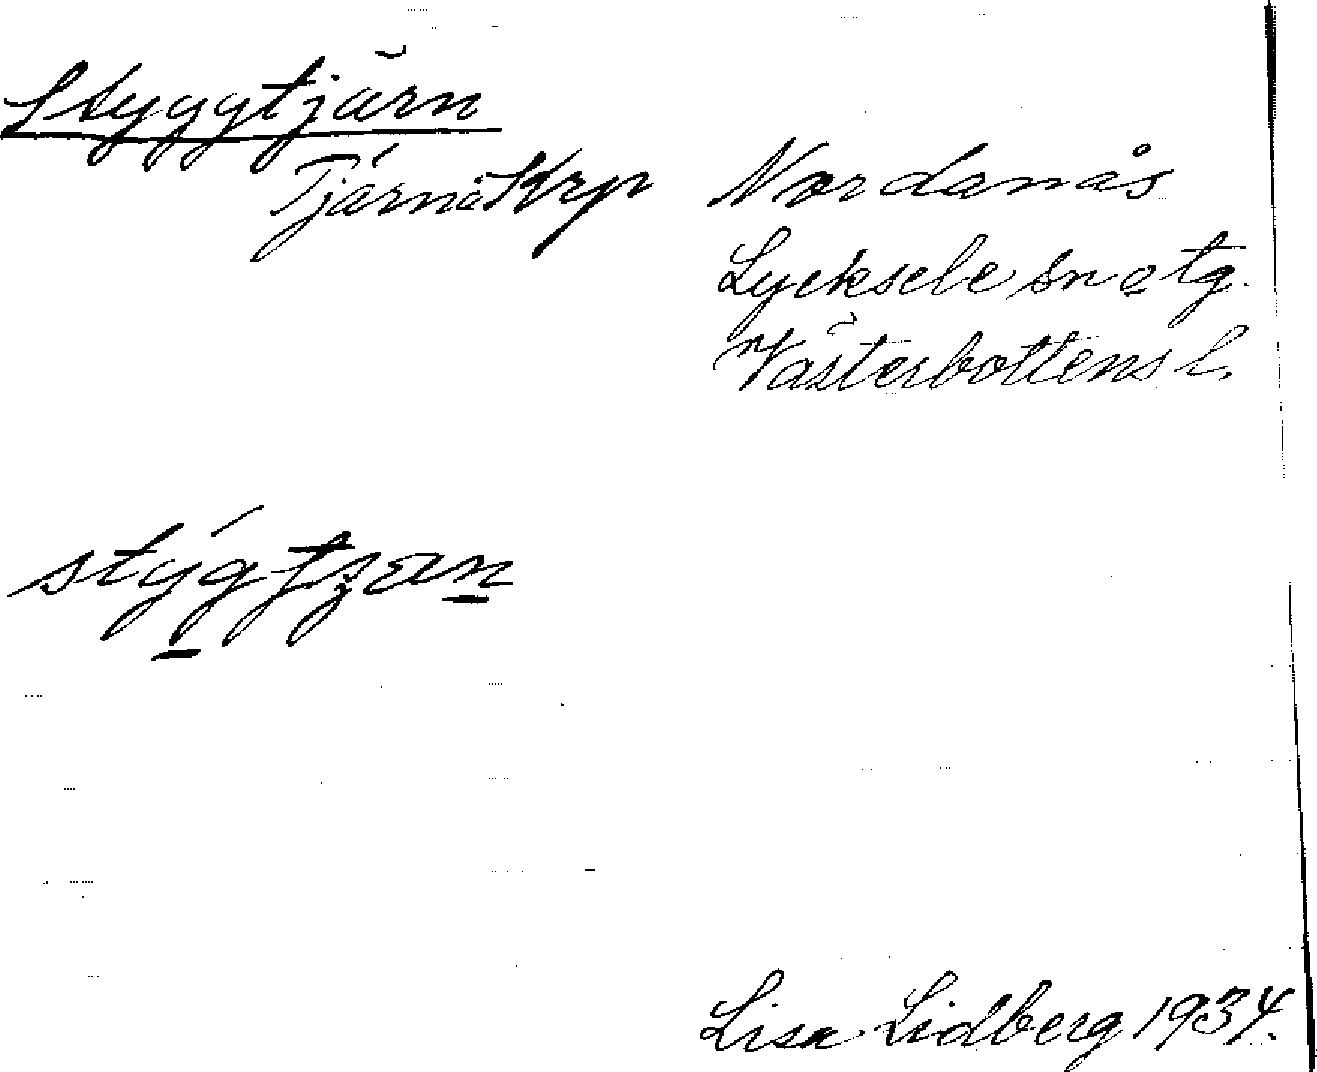 Styggtjärn
Tjärn i Krp
Nordanås
Lycksele sn o tg.
Västerbottens l.
Lisa Lidberg 1934.